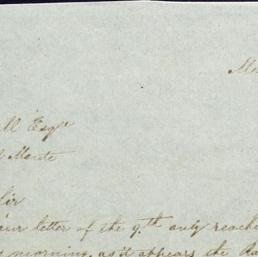 Me
ll Esqre
Monte
Sir
our letter of the 9th only reache
morning, as it appears the